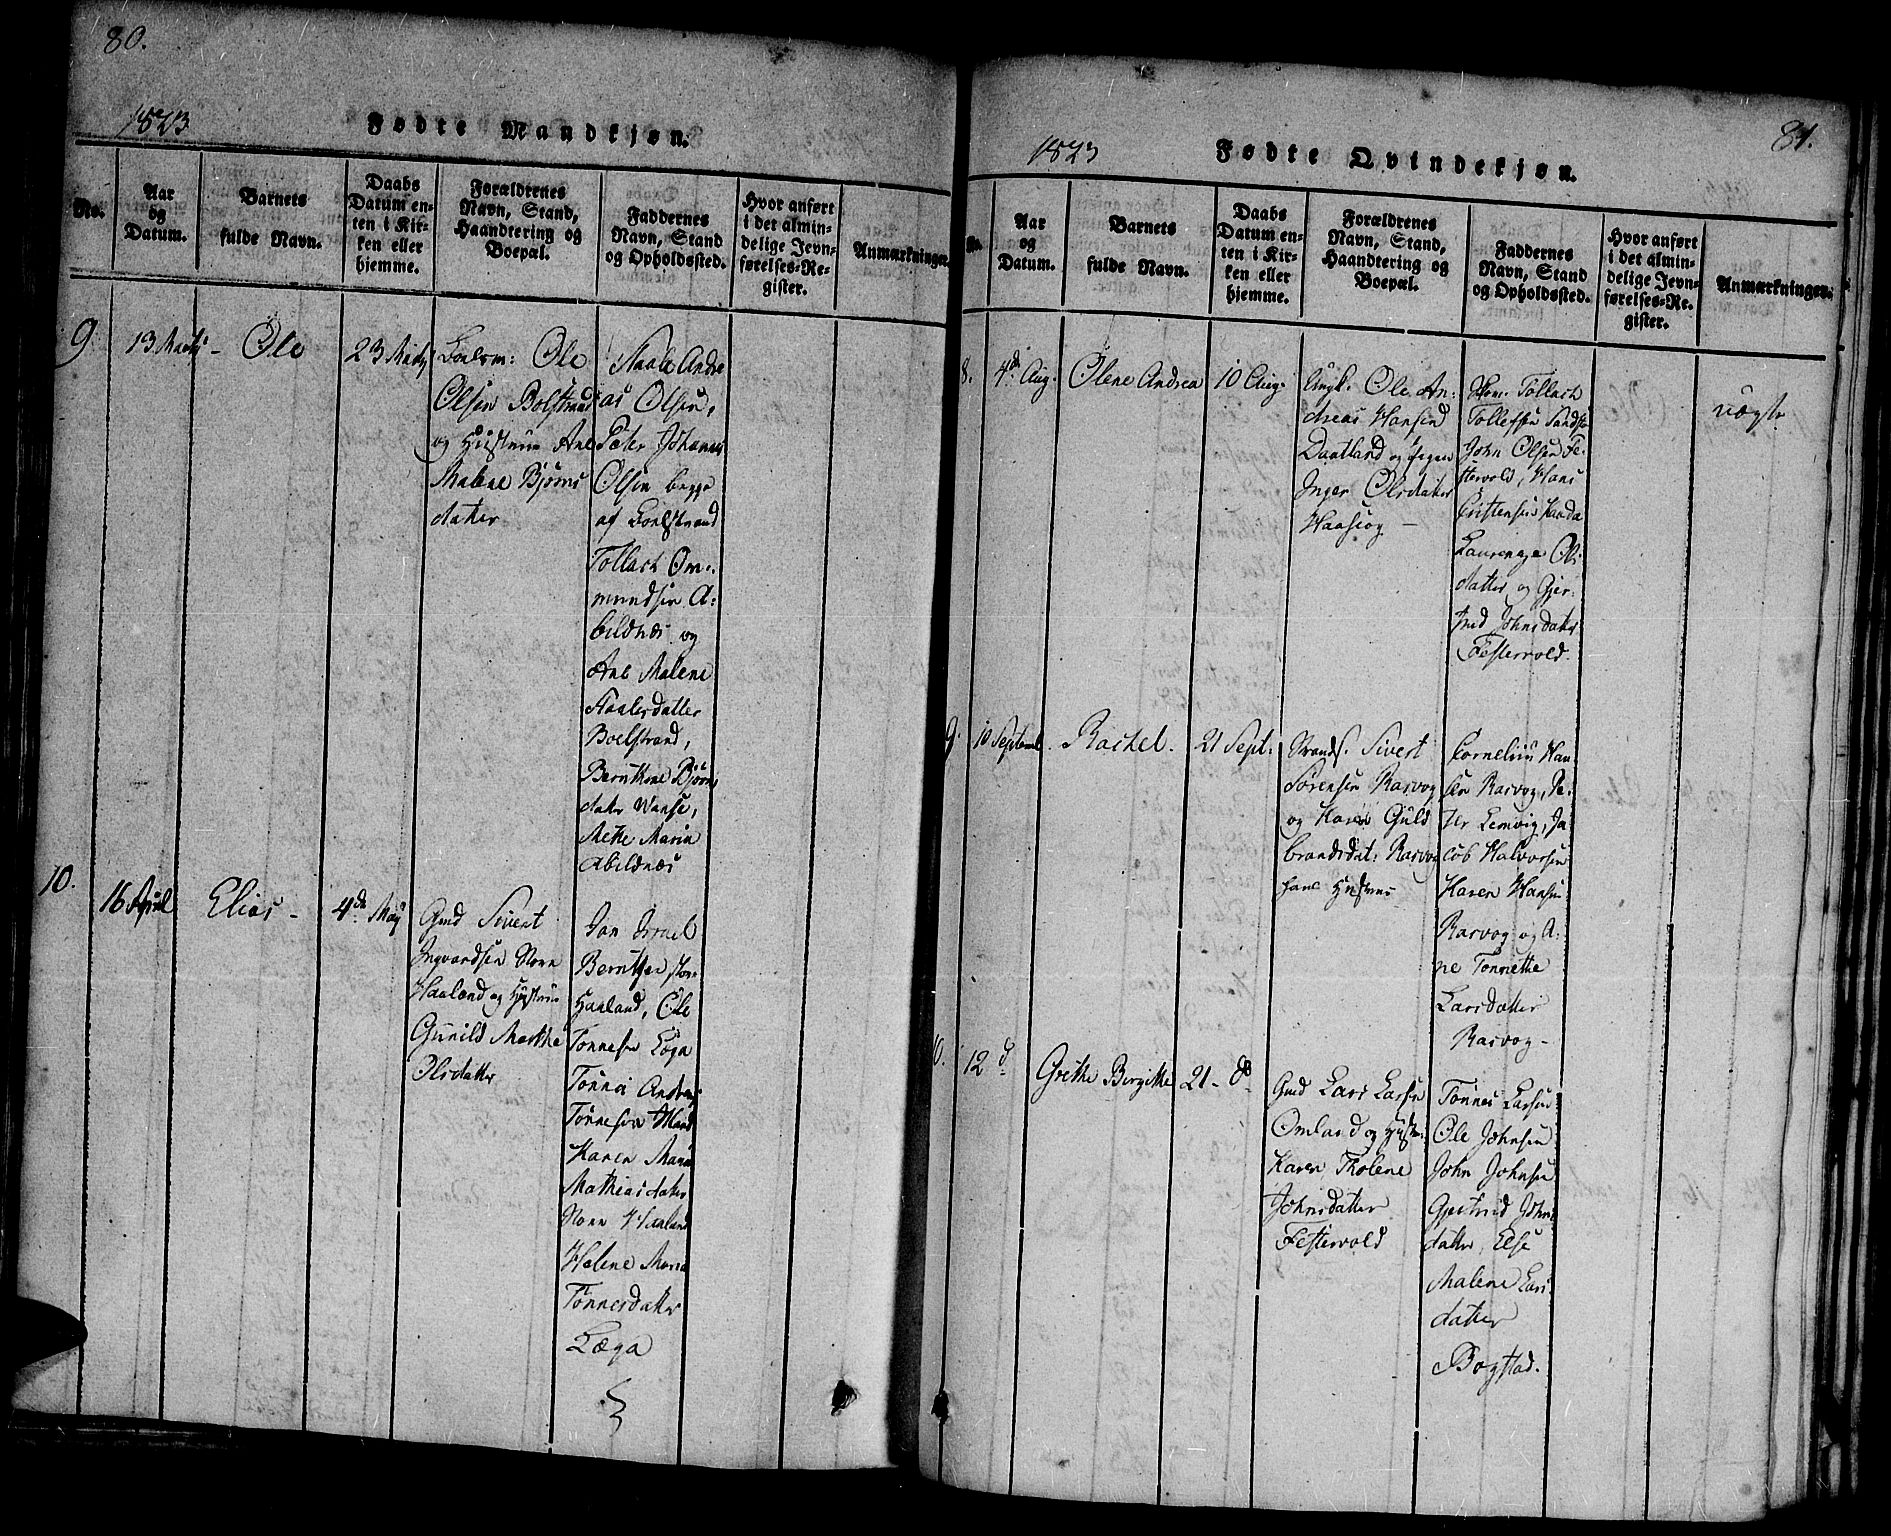 80.
1823
Fødte Mandkjøn.
No.
Aar
og
Datum.
Barnets
fulde Navn.
Daabs
Datum en-
ten i Kir-
ken eller
hjemme.
Forældrenes
Navn, Stand,
Haandtering og
Boepæl.
Faddernes
Navn, Stand
og Opholdssted.
Hvor anført
i det almin-
delige Jevn-
førelses-Re-
gister.
Anmærkninger.
9
13 Marty -
Ole
23 Marty
Ole
Olsen Bolstrand
og Hustrue Ane
Malene Bjørns
datter
Staale Andre
as Olsen,
Peter Johannes
Olsen begge
af Boelstrand
Tollach Om-
mundsen A:
bildnæs og
Ane Malene
Staalesdatter
Boelstrand,
Bernthine Bjørns
dater Wanse,
Methe Maria
Abildnæs
10.
16 April
Elias -
4de May
Gmd Sivert
Ingvardsen Store
Haaland og Hustrue
Gunild Marthe
Olsdatter
Jan Israel
Berntsen store
Haaland, Ole
Tønnesen Løga
Tønnes Andreas
Tønnesen
Karen Maria
Mathiasdater
Store Haaland
Helene Maria
Tønnesdatter
Læga
81.
1823
Fødte Qvindekjøn.
No.
Aar
og
Datum.
Barnets
fulde Navn.
Daabs
Datum en-
ten i Kir-
ken eller
hjemme.
Forældrenes
Navn, Stand,
Haandtering og
Boepæl.
Faddernes
Navn, Stand
og Opholdssted.
Hvor anført
i det almin-
delige Jevn-
førelses-Re-
gister.
Anmærkninger.
8.
4de Aug.
Olene Andrea
10 Aug.
Ungk. Ole An-
dreas Hansen
Daatland og Pigen
Inger Olsdatter
Haasiog -
Tollach
Tollefsen
John Olsen Fe-
stervold, Hans
Cristensen
Laurenze Ols
datter og Gjer-
trud Johnsdater
Festervold.
uægte
9.
10 Septembr.
Rachel.
21 Sept.
Strands. Sivert
Sørensen Rasvog
og Karen Guld
brandsdat: Rasvog
hans Hustrue
Cornelius Han-
sen Rasvog, Pe-
ter Lemvig, Ja
cob Halvorsen
Karen Hansen
Rasvog og A:
ne Tonnette
Larsdatter
Rasvog -
10.
12 d
Grethe Birgitte
21 - do
Gmd Lars Larsen
Omland og Hustr:
Karen Tholene
Johnsdatter
Festervold
Tønnes Larsen
Ole Johnsen
John Johnsen
Gjertrud Johns
datter, Else
Malene Lars
datter
Bogstad.